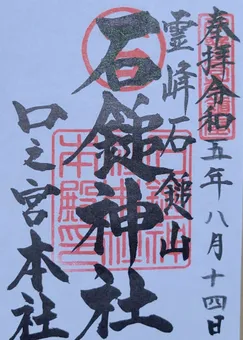 奉拝令和五年八月十四日
霊峰石鎚山
石鎚神社
口之宮本社